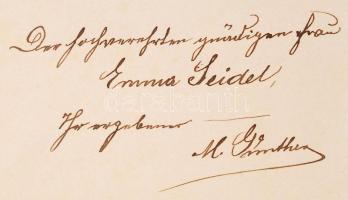 Der hochverehrten gnädigen Frau
Emma Seidel,
Ihr ergebener
M. Günther